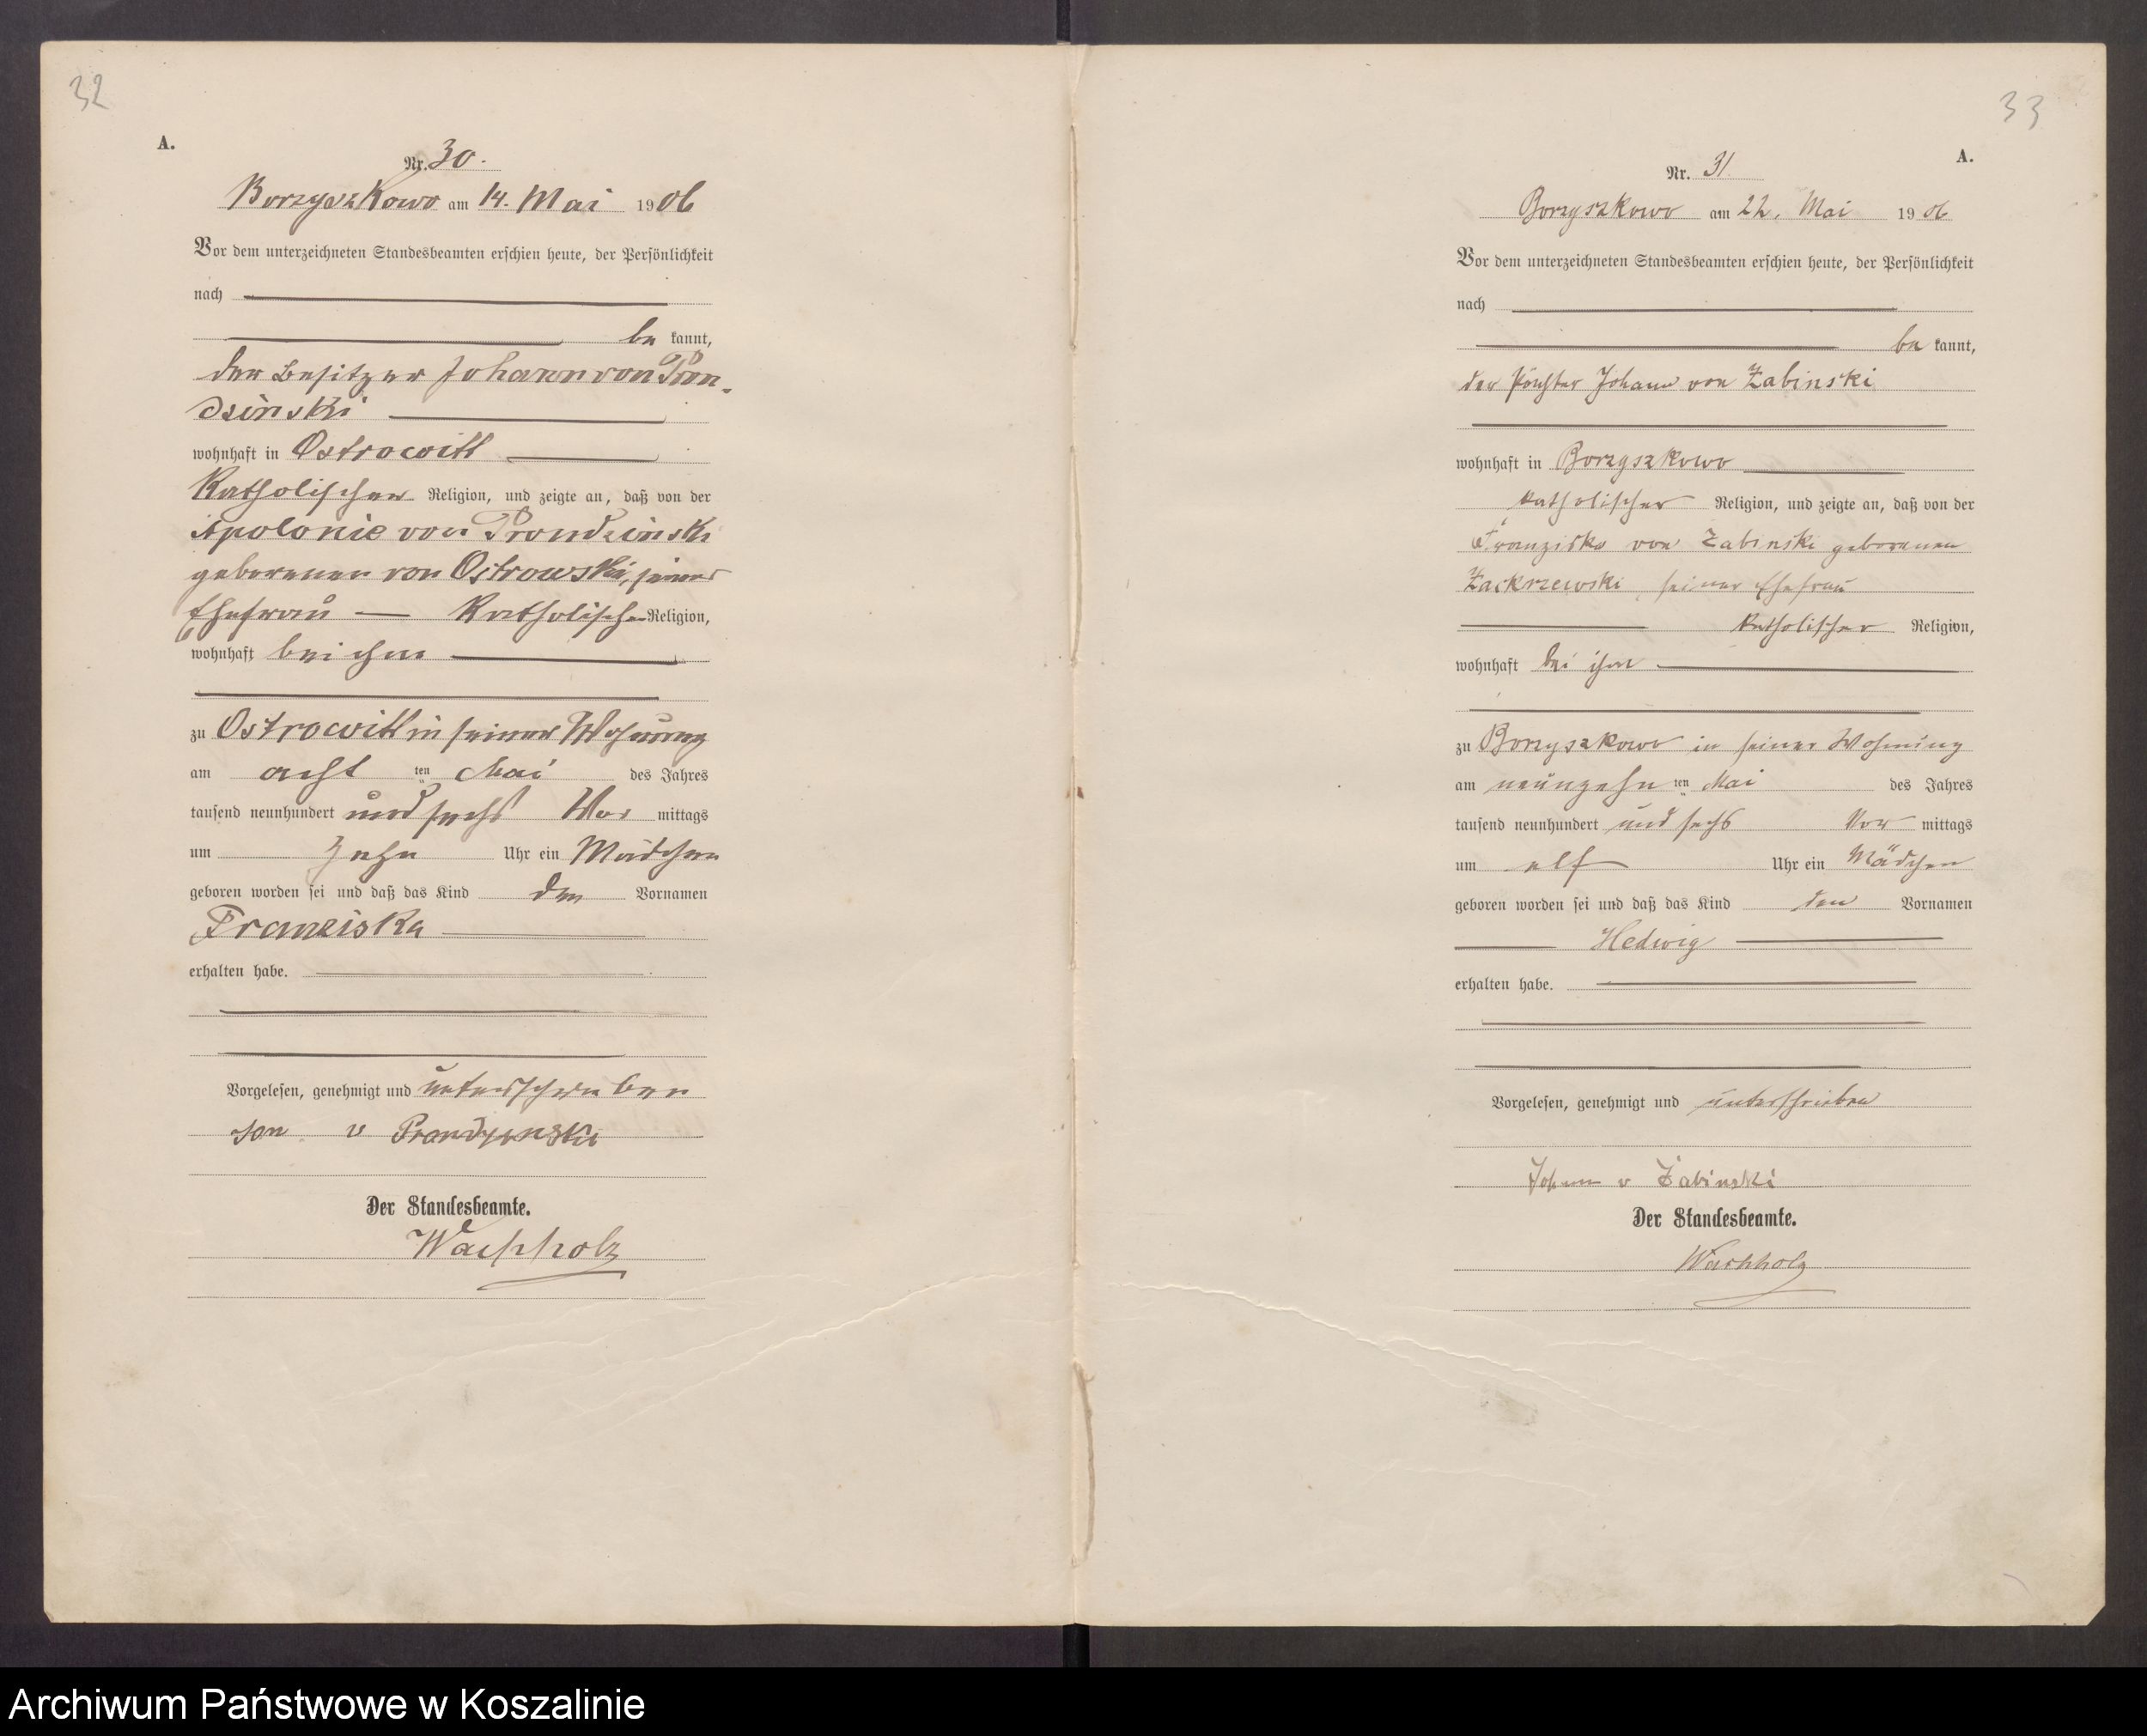 32
A.
Nr. 30.
Borzyszkowo am 14. Mai 1906
Vor dem unterzeichneten Standesbeamten erschien heute, der Persönlichkeit
nach
be kannt,
der Besitzer Johann von Pron-
dzinski
wohnhaft in Ostrowitt
katholischer Religion, und zeigte an, daß von der
Apolonie von Prondzinski
geborenen von Ostrowski, seiner
Ehefrau katholischer Religion,
wohnhaft bei ihm
zu Ostrowitt in seiner Wohnung
am acht ten Mai des Jahres
tausend neunhundert und sechs Vor mittags
um zehn Uhr ein Mädchen
geboren worden sei und daß das Kind den Vornamen
Franziska
erhalten habe.
Vorgelesen, genehmigt und unterschrieben
v Prondzynski
Der Standesbeamte.
Wachholz
33
A.
Nr. 31
Borzyszkowo am 22. Mai 1906
Vor dem unterzeichneten Standesbeamten erschien heute, der Persönlichkeit
nach
be kannt,
der Johann von Žabinski
wohnhaft in Borzyszkowo
katholischer Religion, und zeigte an, daß von der
Franziska von Zabinski geborenen
Zackrzewski, seiner Ehefrau
katholischer Religion,
wohnhaft bei ihm
zu Borzyszkowo in seiner Wohnung
am neunzehn ten Mai des Jahres
tausend neunhundert und sechs Vor mittags
um elf Uhr ein Mädchen
geboren worden sei und daß das Kind den Vornamen
Hedwig
erhalten habe.
Vorgelesen, genehmigt und unterschrieben
Johann v Żabinski
Der Standesbeamte.
Wachholz
Archiwum Państwowe w Koszalinie